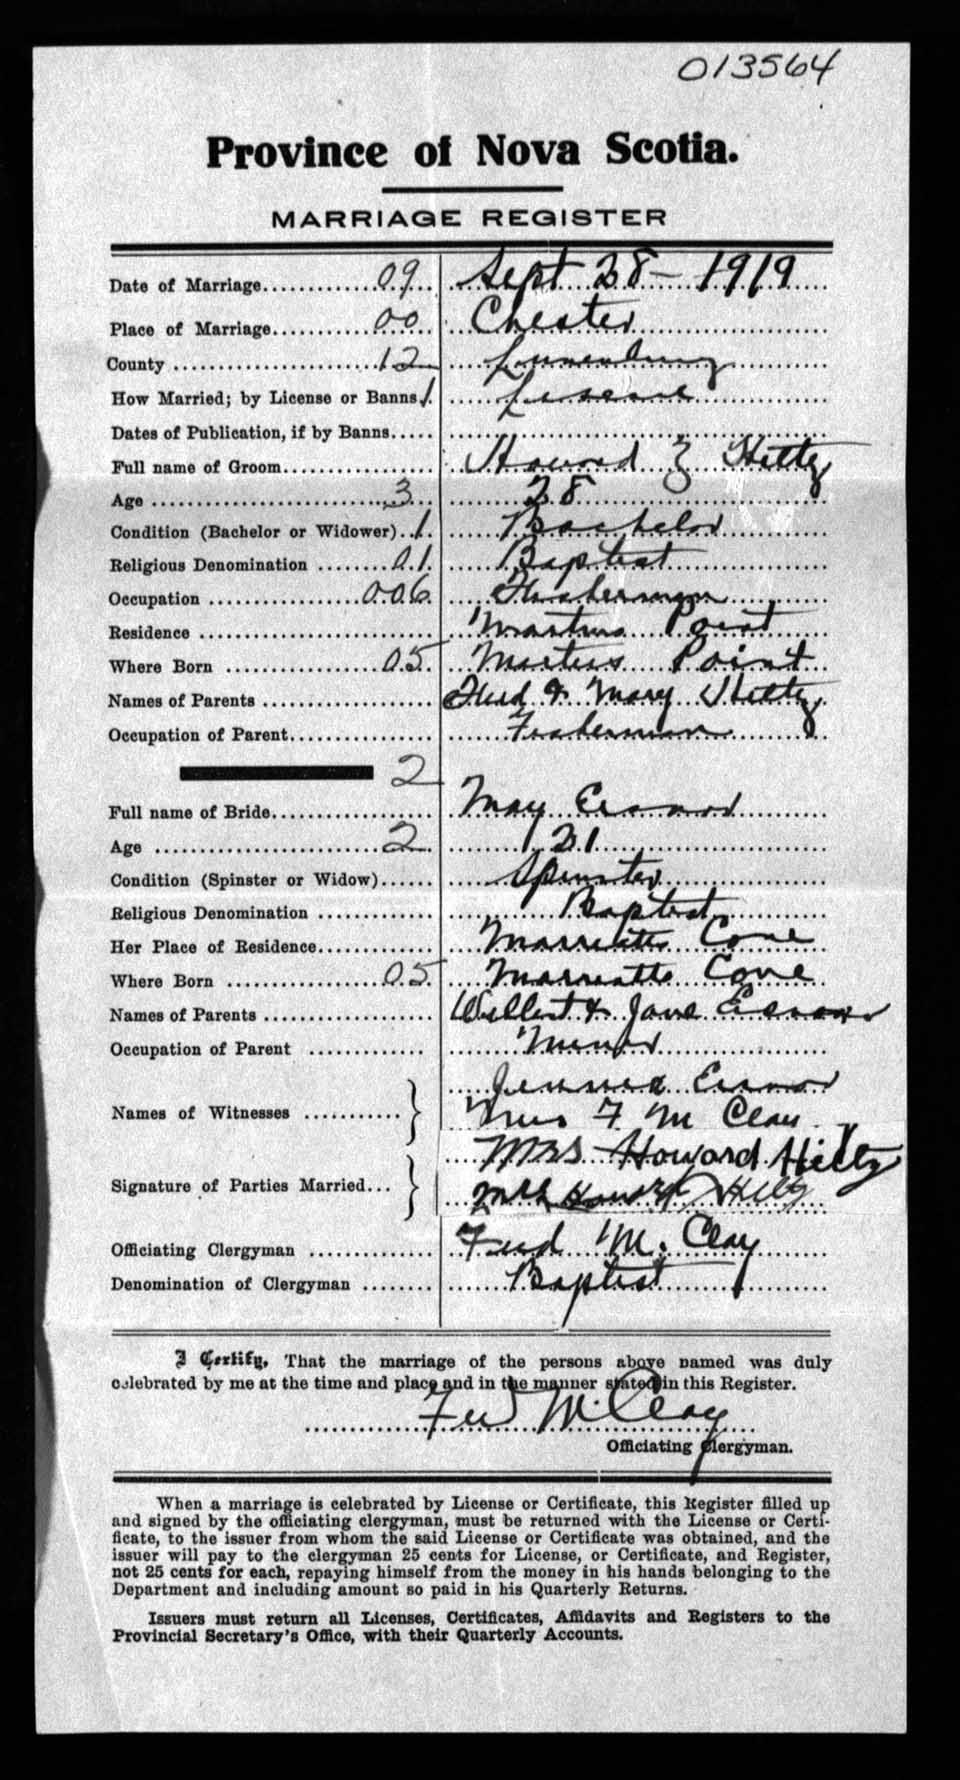 013564
Province of Nova Scotia.
MARRIAGE REGISTER
Date of Marriage 09 Sept 28 - 1919
Place of Marriage 00 Chester
County 12 Lunenburg
How Married; by License or Banns 1. License
Dates of Publication, if by Banns
Full name of Groom Howard Z Hiltz
Age 3 28
Condition (Bachelor or Widower) 1. Bachelor
Religious Denomination 01. Baptist
Occupation 006. Fisherman
Residence Martins Point
Where Born 05 Martins Point
Names of Parents & Mary Hiltz
Occupation of Parent Fisherman
2
Full name of Bride May Eisnor
Age 2 21
Condition (Spinster or Widow) Spinster
Religious Denomination Baptist
Her Place of Residence Marriatts Cove
Where Born 05 Marriatts Cove
Names of Parents Willert & Jane Eisnor
Occupation of Parent Miner
Jennie Eisnor
Names of Witnesses Mrs F M Clay
Mrs Howard Hiltz
Signature of Parties Married Howard Hiltz
Officiating Clergyman Fred M. Clay
Denomination of Clergyman Baptist
I Certify, That the marriage of the persons above named was duly
celebrated by me at the time and place and in the manner stated in this Register.
Fred M. Clay
Officiating Clergyman.
When a marriage is celebrated by License or Certificate, this Register filled up
and signed by the officiating clergyman, must be returned with the License or Certi-
ficate, to the issuer from whom the said License or Certificate was obtained, and the
issuer will pay to the clergyman 25 cents for License, or Certificate, and Register,
not 25 cents for each, repaying himself from the money in his hands belonging to the
Department and including amount so paid in his Quarterly Returns.
Issuers must return all Licenses, Certificates, Affidavits and Registers to the
Provincial Secretary's Office, with their Quarterly Accounts.